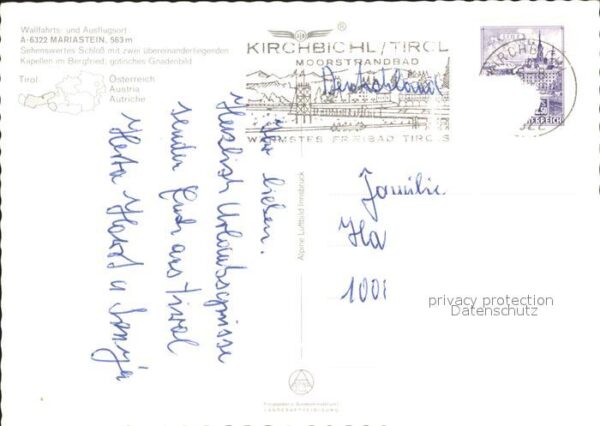 Wallfahrts- und Ausflugsort
A-6322 MARIASTEIN, 563 m
Sehenswertes Schloß mit zwei übereinanderliegenden
Kapellen im Bergfried, gotisches Gnadenbild
Tirol
Österreich
Austria
Autriche
®
KIRCHBICHL/TIROL
MOORSTRANDBAD
WÄRMSTES FREIBAD TIROLS
Deutschland
Ihr Lieben.
Herzlich Urlaubsgrüsse
senden Euch aus Tirol
Herta Harald u Sonja
Alpine Luftbild Innsbruck
Familie
Ha
1008
privacy protection
Datenschutz